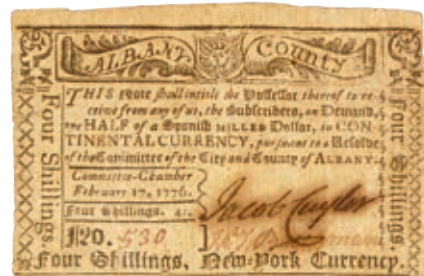 ALBANY COUNTY
THIS Note shall intitle the Possessor thereof to re-
ceive from any of us, the Subscribers, on Demand,
the HALF of a Spanish MILLED Dollar, in CON-
TINENTAL CURRENCY, pursuant to a Resolve
of the Committee of the City and County of ALBANY.
Committee-Chamber
February 17, 1776.
Four Shillings. 4s.
Jacob Cuyler
No. 530
Four Shillings, New-York Currency.
Four Shillings
Four Shillings